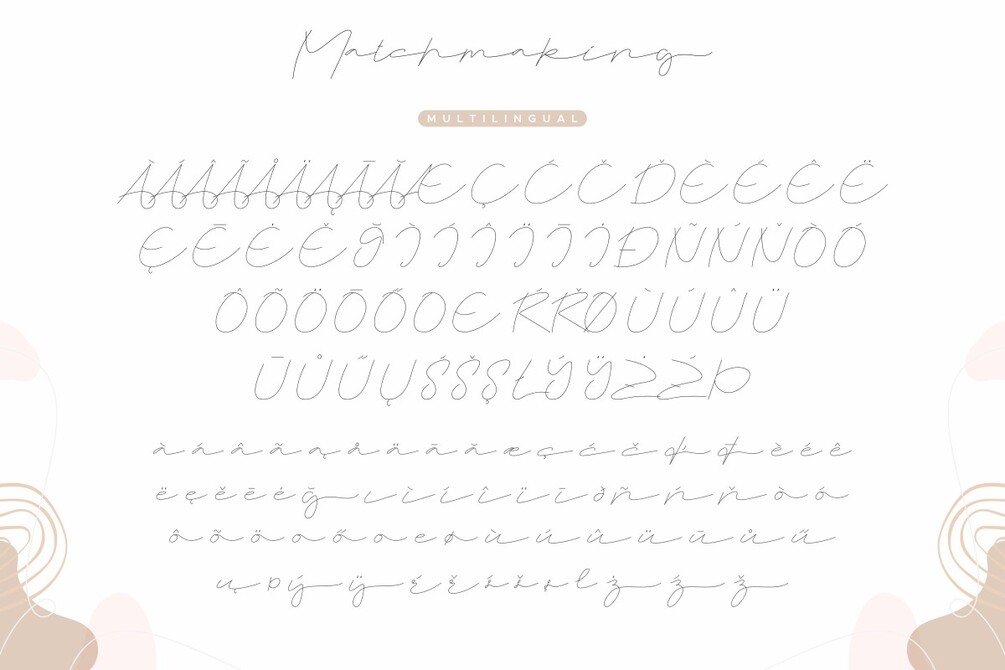 Matchmaking
MULTILINGUAL
ÀÁÂÃÅÄĄĀĂÆÇĆČĎÈÉÊË
ĘĒĖĚĞÌÍÎÏĪİĐÑŃŇÒÓ
ÔÕÖŌŐOE ŔŘØÙÚÛÜ
ŪŮŰŲŚŠŞŁÝŸŻŹÞ
àáâãąåäāăæçćčđďèéê
ëęěēėğıìíîïīðñńňòó
ôõöōőoeøùúûüūůű
ųþýÿŕřśšşłżźž